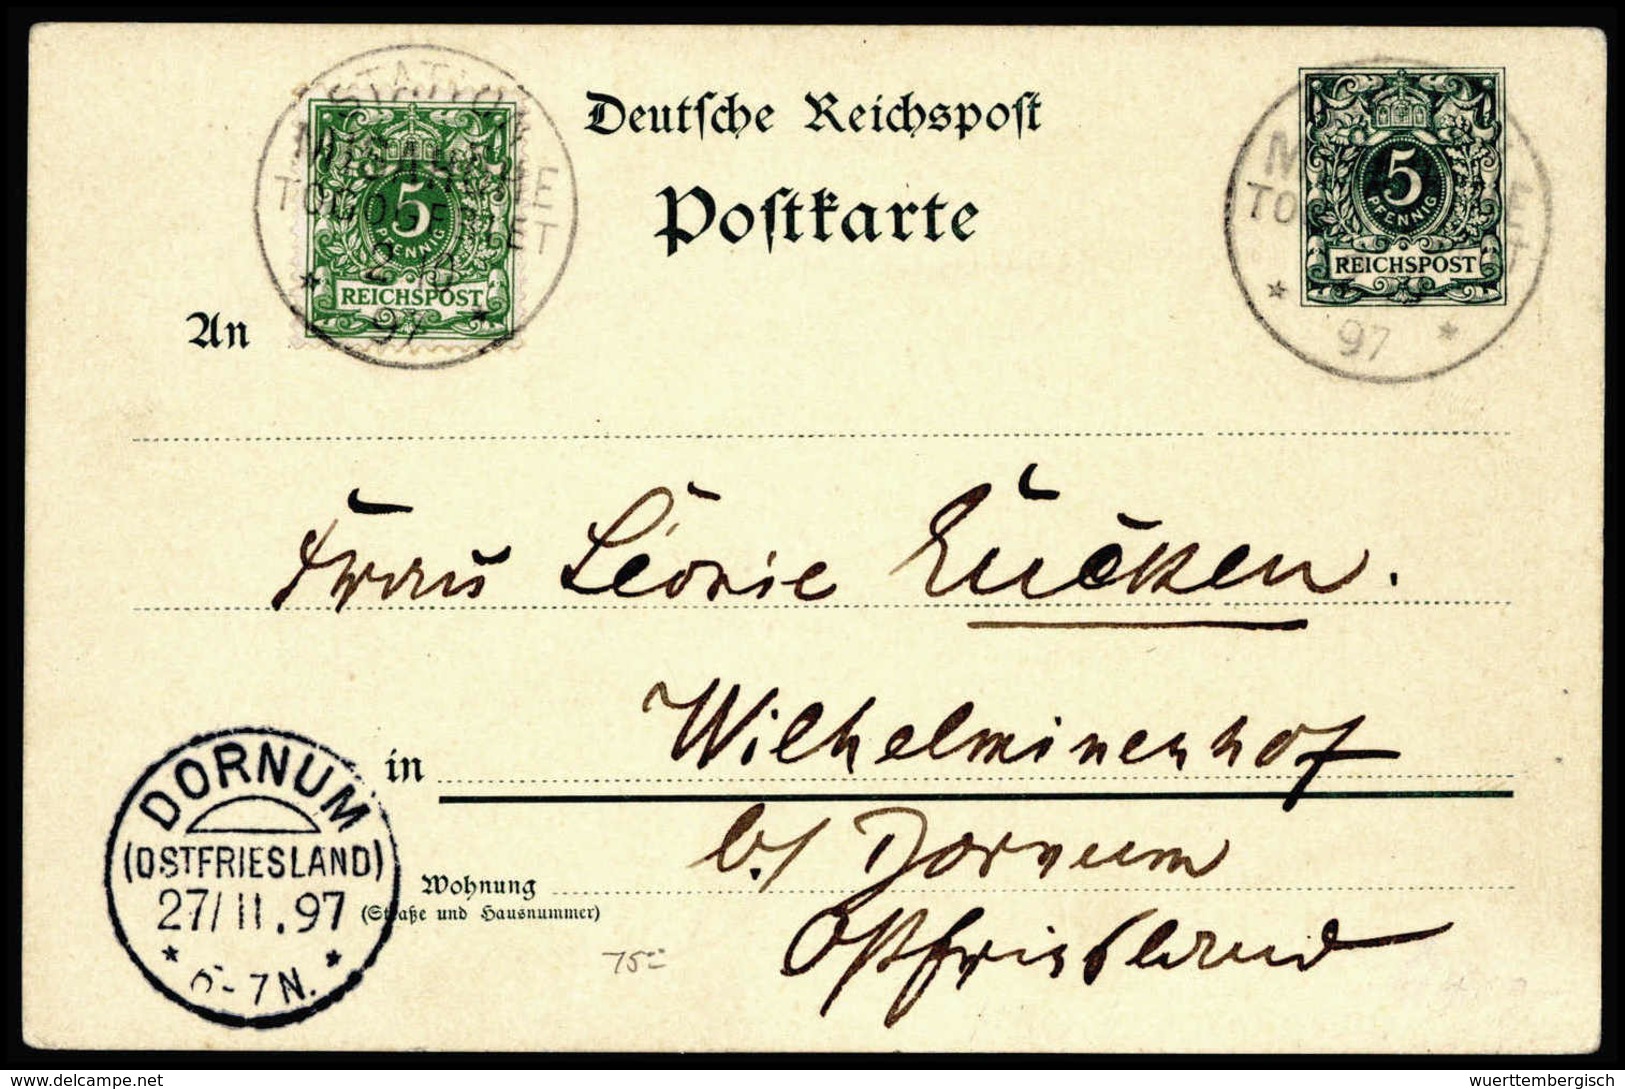 STATION
MISAHÖHE
TOGOGEBIET
2 10
97
5
PFENNIG
REICHSPOST
Deutsche Reichspost
Postkarte
5
PFENNIG
REICHSPOST
97
An
Frau Léonie Lücken.
in Wilhelminenhof
b/ Dornum
Wohnung
(Straße und Hausnummer)
Ostfriesland
DORNUM
(OSTFRIESLAND)
27/11.97
6-7N.
75
www.delcampe.net
wuerttembergisch